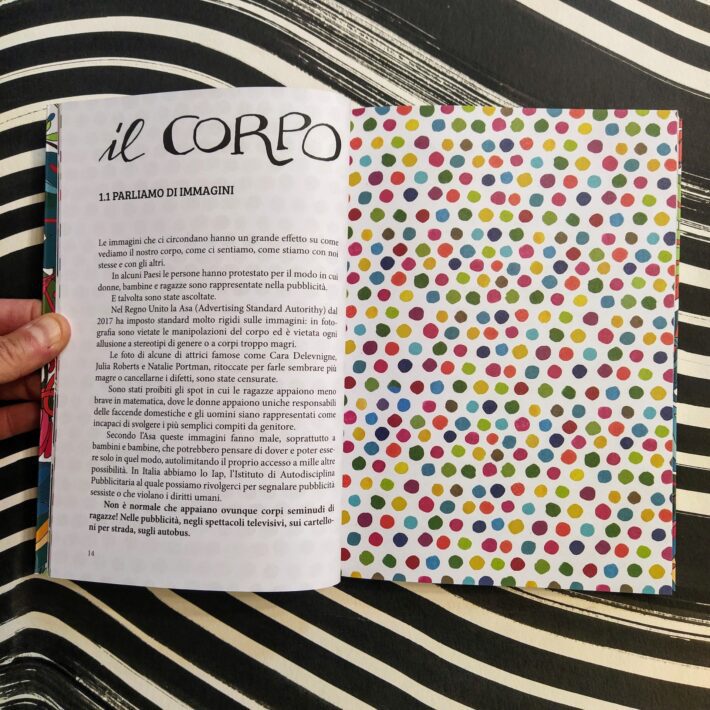 il CORPO
1.1 PARLIAMO DI IMMAGINI
Le immagini che ci circondano hanno un grande effetto su come
vediamo il nostro corpo, come ci sentiamo, come stiamo con noi
stesse e con gli altri.
In alcuni Paesi le persone hanno protestato per il modo in cui
donne, bambine e ragazze sono rappresentate nella pubblicità.
E talvolta sono state ascoltate.
Nel Regno Unito la Asa (Advertising Standard Autorithy) dal
2017 ha imposto standard molto rigidi sulle immagini: in foto-
grafia sono vietate le manipolazioni del corpo ed è vietata ogni
allusione a stereotipi di genere o a corpi troppo magri.
Le foto di alcune di attrici famose come Cara Delevnigne,
Julia Roberts e Natalie Portman, ritoccate per farle sembrare più
magre o cancellarne i difetti, sono state censurate.
Sono stati proibiti gli spot in cui le ragazze appaiono meno
brave in matematica, dove le donne appaiono uniche responsabili
delle faccende domestiche e gli uomini siano rappresentati come
incapaci di svolgere i più semplici compiti da genitore.
Secondo l'Asa queste immagini fanno male, soprattutto a
bambini e bambine, che potrebbero pensare di dover e poter esse-
re solo in quel modo, autolimitando il proprio accesso a mille altre
possibilità. In Italia abbiamo lo Iap, l'Istituto di Autodisciplina
Pubblicitaria al quale possiamo rivolgerci per segnalare pubblicità
sessiste o che violano i diritti umani.
Non è normale che appaiano ovunque corpi seminudi di
ragazze! Nelle pubblicità, negli spettacoli televisivi, sui cartello-
ni per strada, sugli autobus.
14